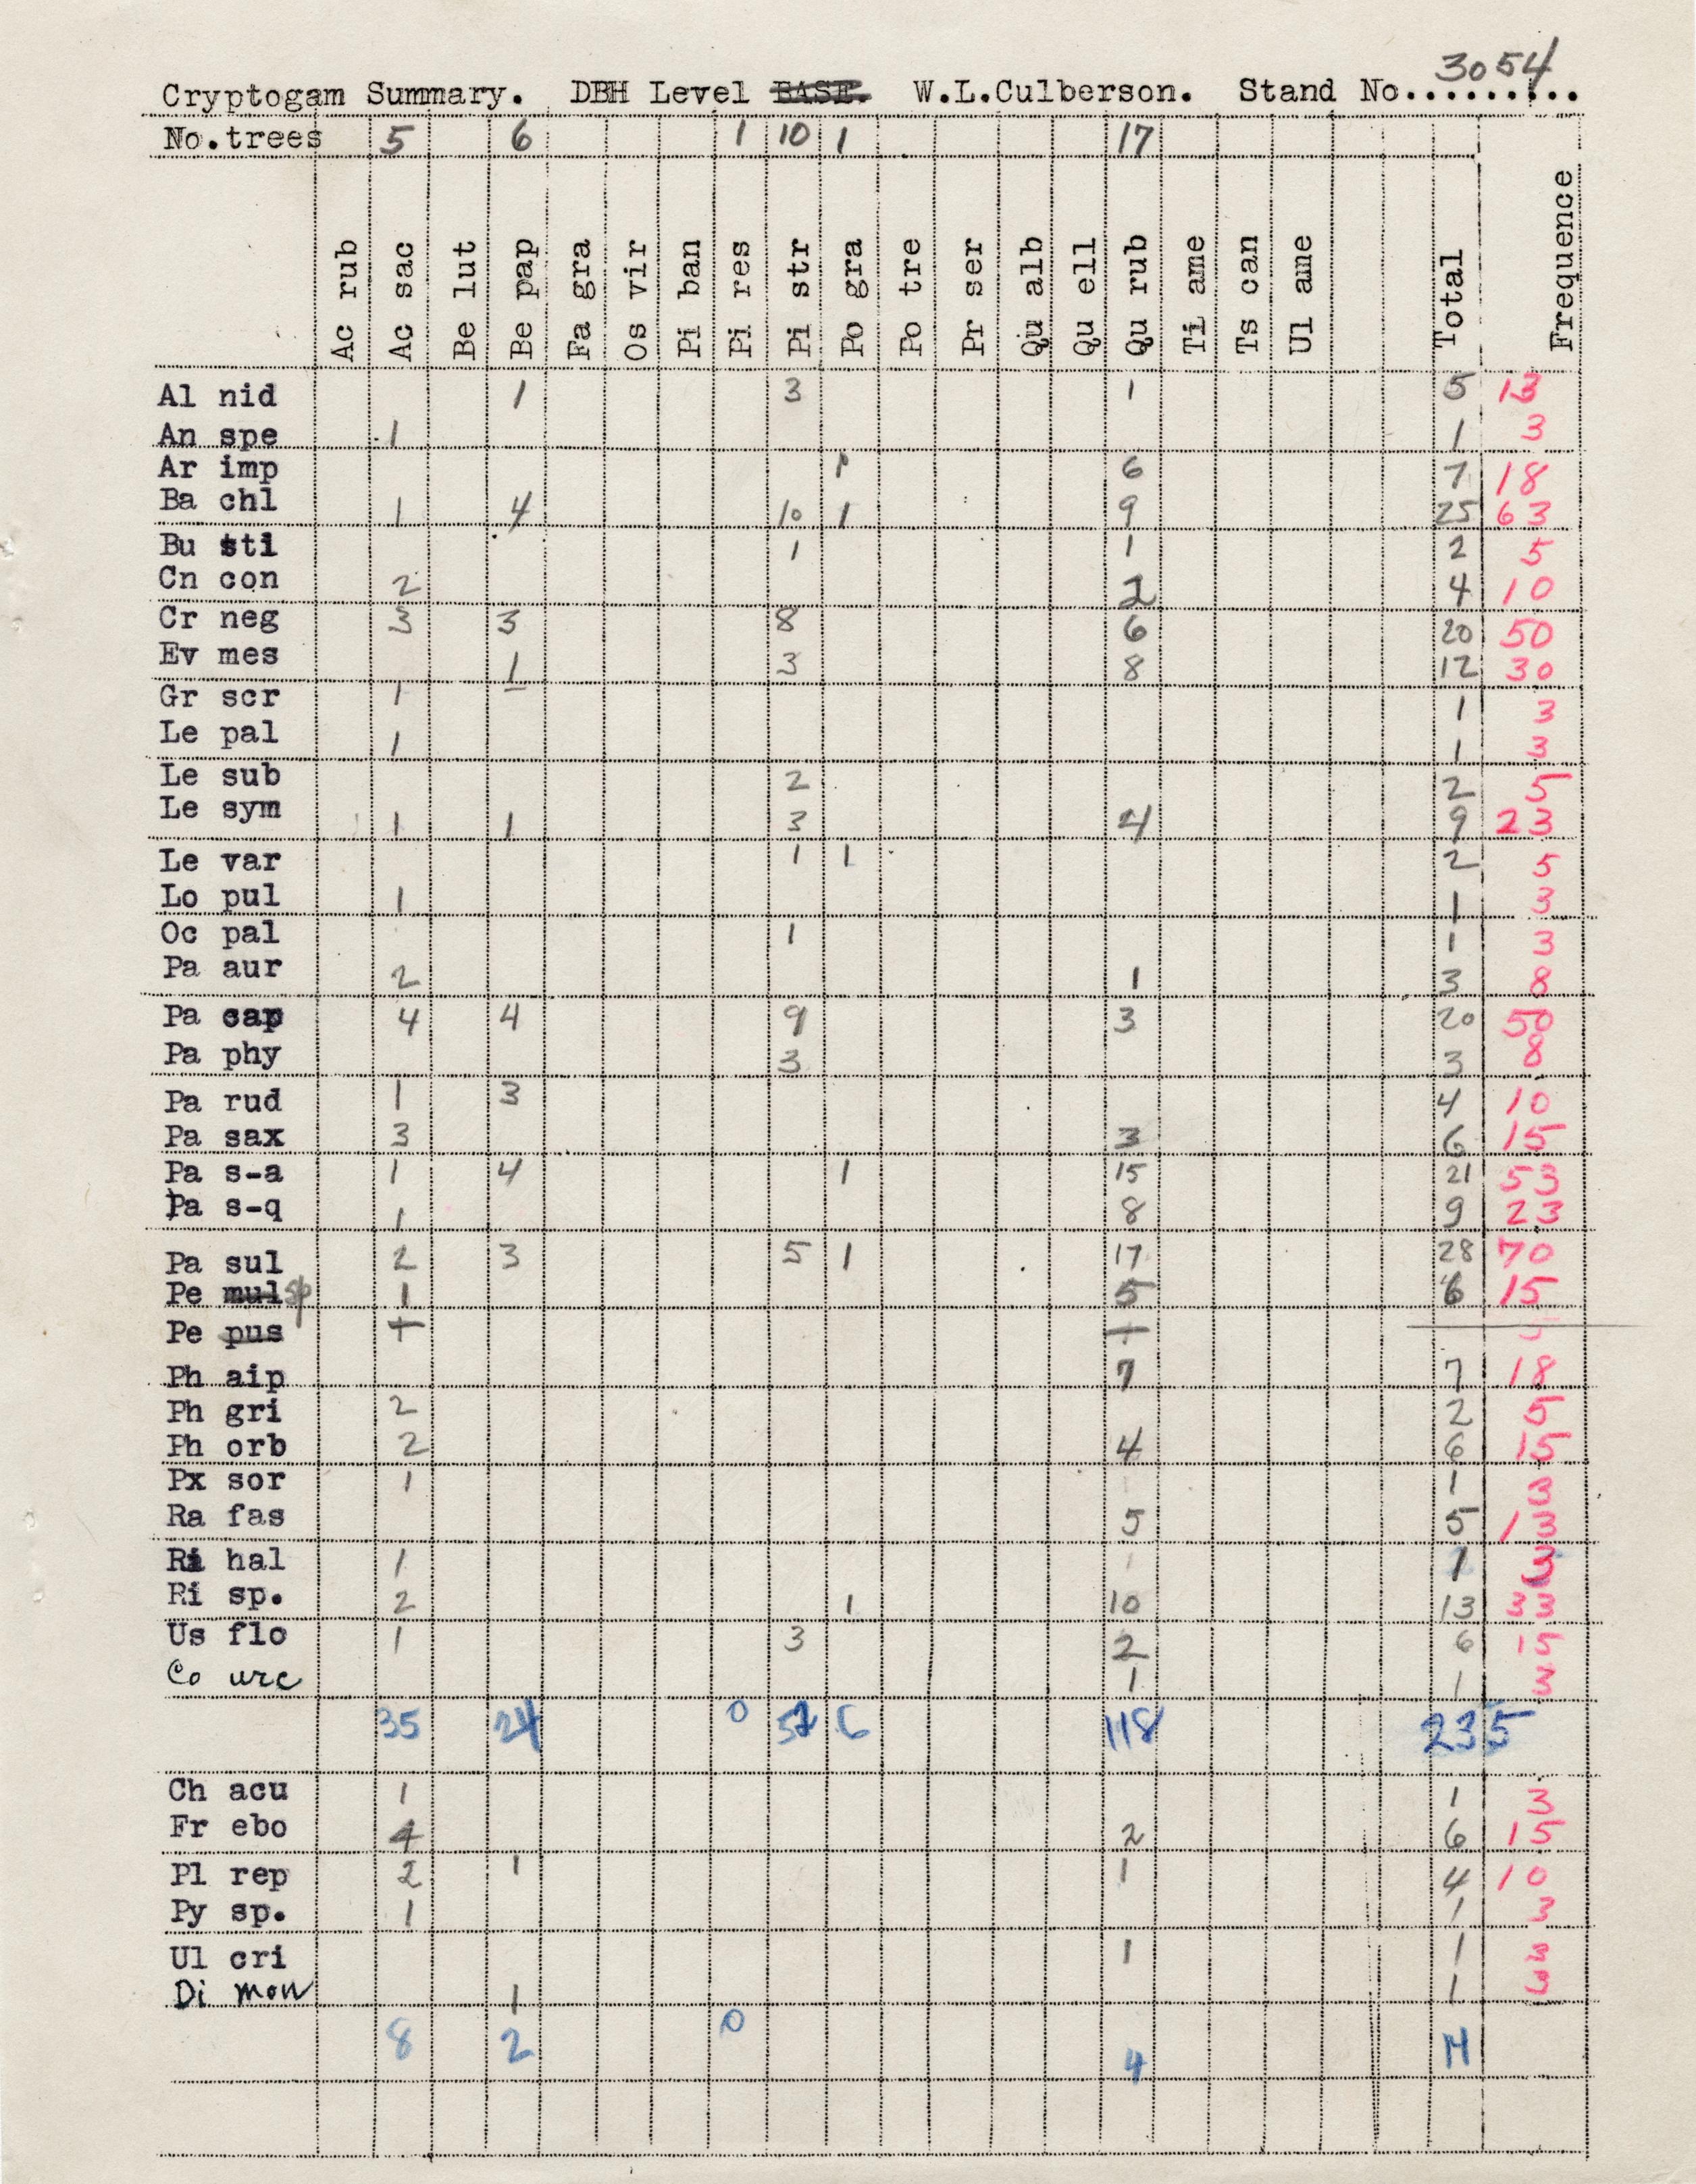 Cryptogam Summary. DBH Level BASE. W.L.Culberson. Stand No......... 3054
No.trees 5 6 1 10 1 17
Ac rub Ac sac Be lut Be pap Fa gra Os vir Pi ban Pi res Pi str Po gra Po tre Pr ser Qu alb Qu ell Qu rub Ti ame Ts can Ul ame Total Frequence
Al nid 1 3 1 5 13
An spe 1 1 3
Ar imp 1 6 7 18
Ba chl 1 4 10 1 9 25 63
Bu sti 1 1 2 5
Cn con 2 2 4 10
Cr neg 3 3 8 6 20 50
Ev mes 1 3 8 12 30
Gr scr 1 1 3
Le pal 1 1 3
Le sub 2 2 5
Le sym 1 1 3 4 9 23
Le var 1 1 2 5
Lo pul 1 1 3
Oc pal 1 1 3
Pa aur 2 1 3 8
Pa cap 4 4 9 3 20 50
Pa phy 3 3 8
Pa rud 1 3 4 10
Pa sax 3 3 6 15
Pa s-a 1 4 1 15 21 53
Pa s-q 1 8 9 23
Pa sul 2 3 5 1 17 28 70
Pe mul sp 1 5 6 15
Pe pus
Ph aip 7 7 18
Ph gri 2 2 5
Ph orb 2 4 6 15
Px sor 1 1 3
Ra fas 5 5 13
Ri hal 1 1 3
Ri sp. 2 1 10 13 33
Us flo 1 3 2 6 15
Co urc 1 1 3
35 24 0 52 6 118 235
Ch acu 1 1 3
Fr ebo 4 2 6 15
Pl rep 2 1 1 4 10
Py sp. 1 1 3
Ul cri 1 1 3
Di mon 1 1 3
8 2 0 4 14